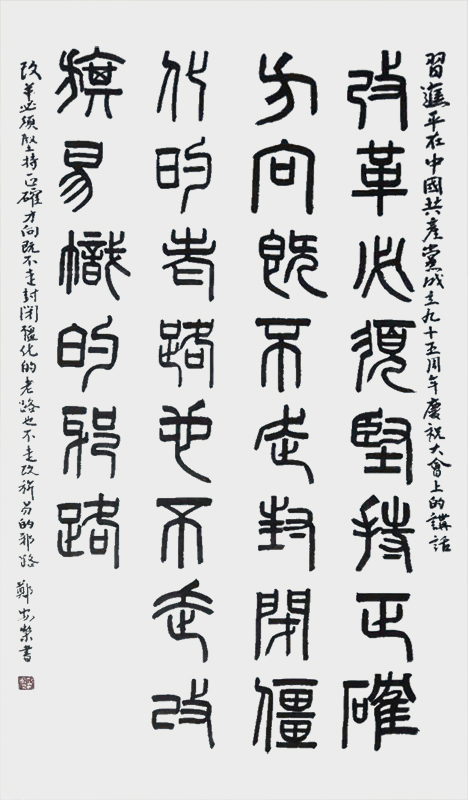 習近平在中國共產黨成立九十五周年慶祝大會上的講話
改革必須堅持正確
方向既不走封閉僵
化的老路也不走改
旗易幟的邪路
改革必须坚持正確方向既不走封闭僵化的老路也不走改旂易的邪路 鄭榮書